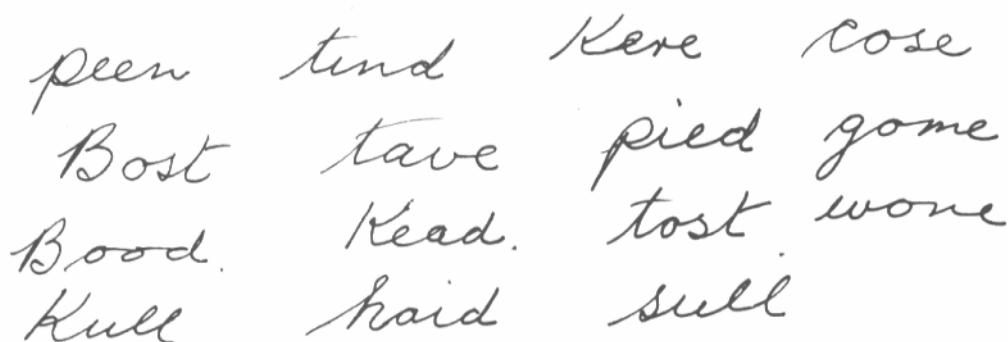 peen tind Kere cose
Bost tave pied gome
Bood. Kead. tost. wone
Kull haid sull